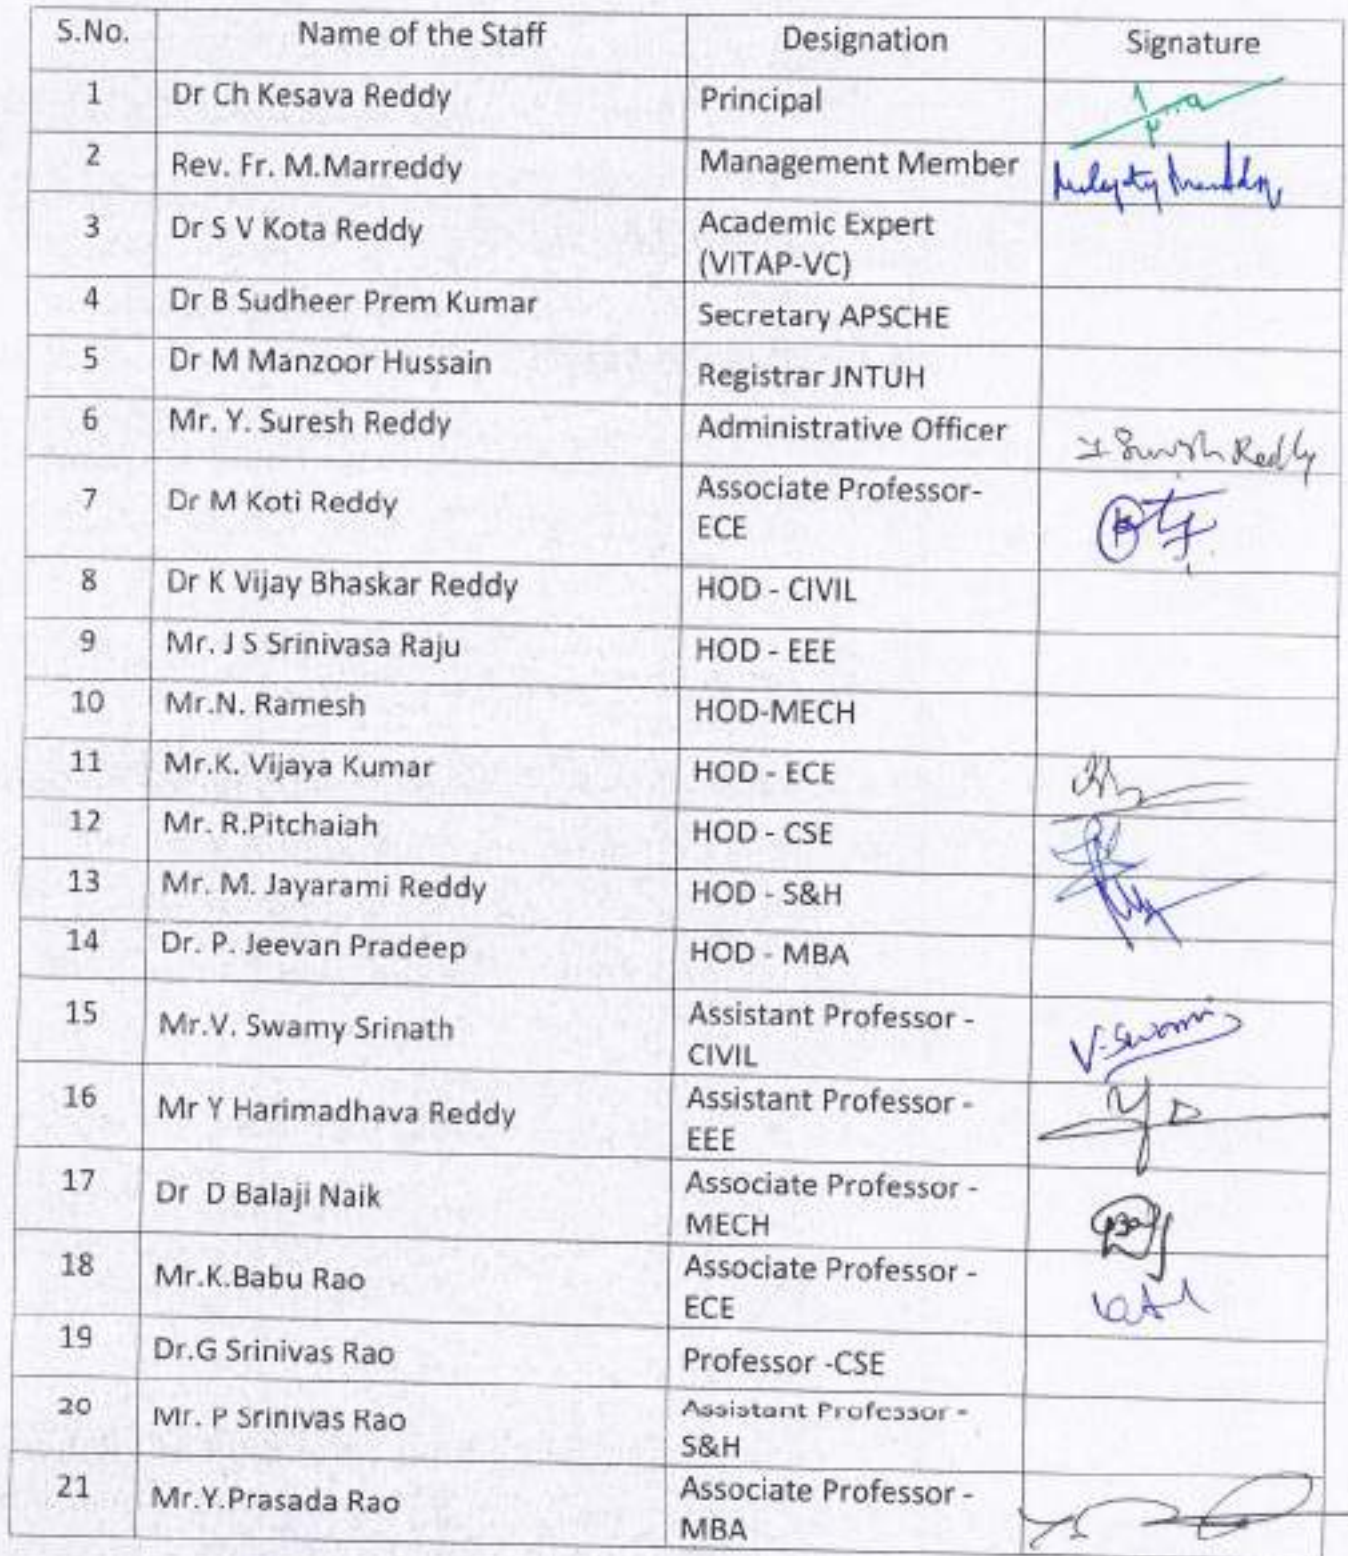 S.No. Name of the Staff Designation Signature
1 Dr Ch Kesava Reddy Principal
2 Rev. Fr. M.Marreddy Management Member
3 Dr S V Kota Reddy Academic Expert
(VITAP-VC)
4 Dr B Sudheer Prem Kumar Secretary APSCHE
5 Dr M Manzoor Hussain Registrar JNTUH
6 Mr. Y. Suresh Reddy Administrative Officer Y Suresh Reddy
7 Dr M Koti Reddy Associate Professor-
ECE
8 Dr K Vijay Bhaskar Reddy HOD - CIVIL
9 Mr. J S Srinivasa Raju HOD - EEE
10 Mr.N. Ramesh HOD-MECH
11 Mr.K. Vijaya Kumar HOD - ECE
12 Mr. R.Pitchaiah HOD - CSE
13 Mr. M. Jayarami Reddy HOD - S&H
14 Dr. P. Jeevan Pradeep HOD - MBA
15 Mr.V. Swamy Srinath Assistant Professor -
CIVIL V.Swami
16 Mr Y Harimadhava Reddy Assistant Professor -
EEE
17 Dr D Balaji Naik Associate Professor -
MECH
18 Mr.K.Babu Rao Associate Professor -
ECE
19 Dr.G Srinivas Rao Professor -CSE
20 Mr. P Srinivas Rao Assistant Professor -
S&H
21 Mr.Y.Prasada Rao Associate Professor -
MBA